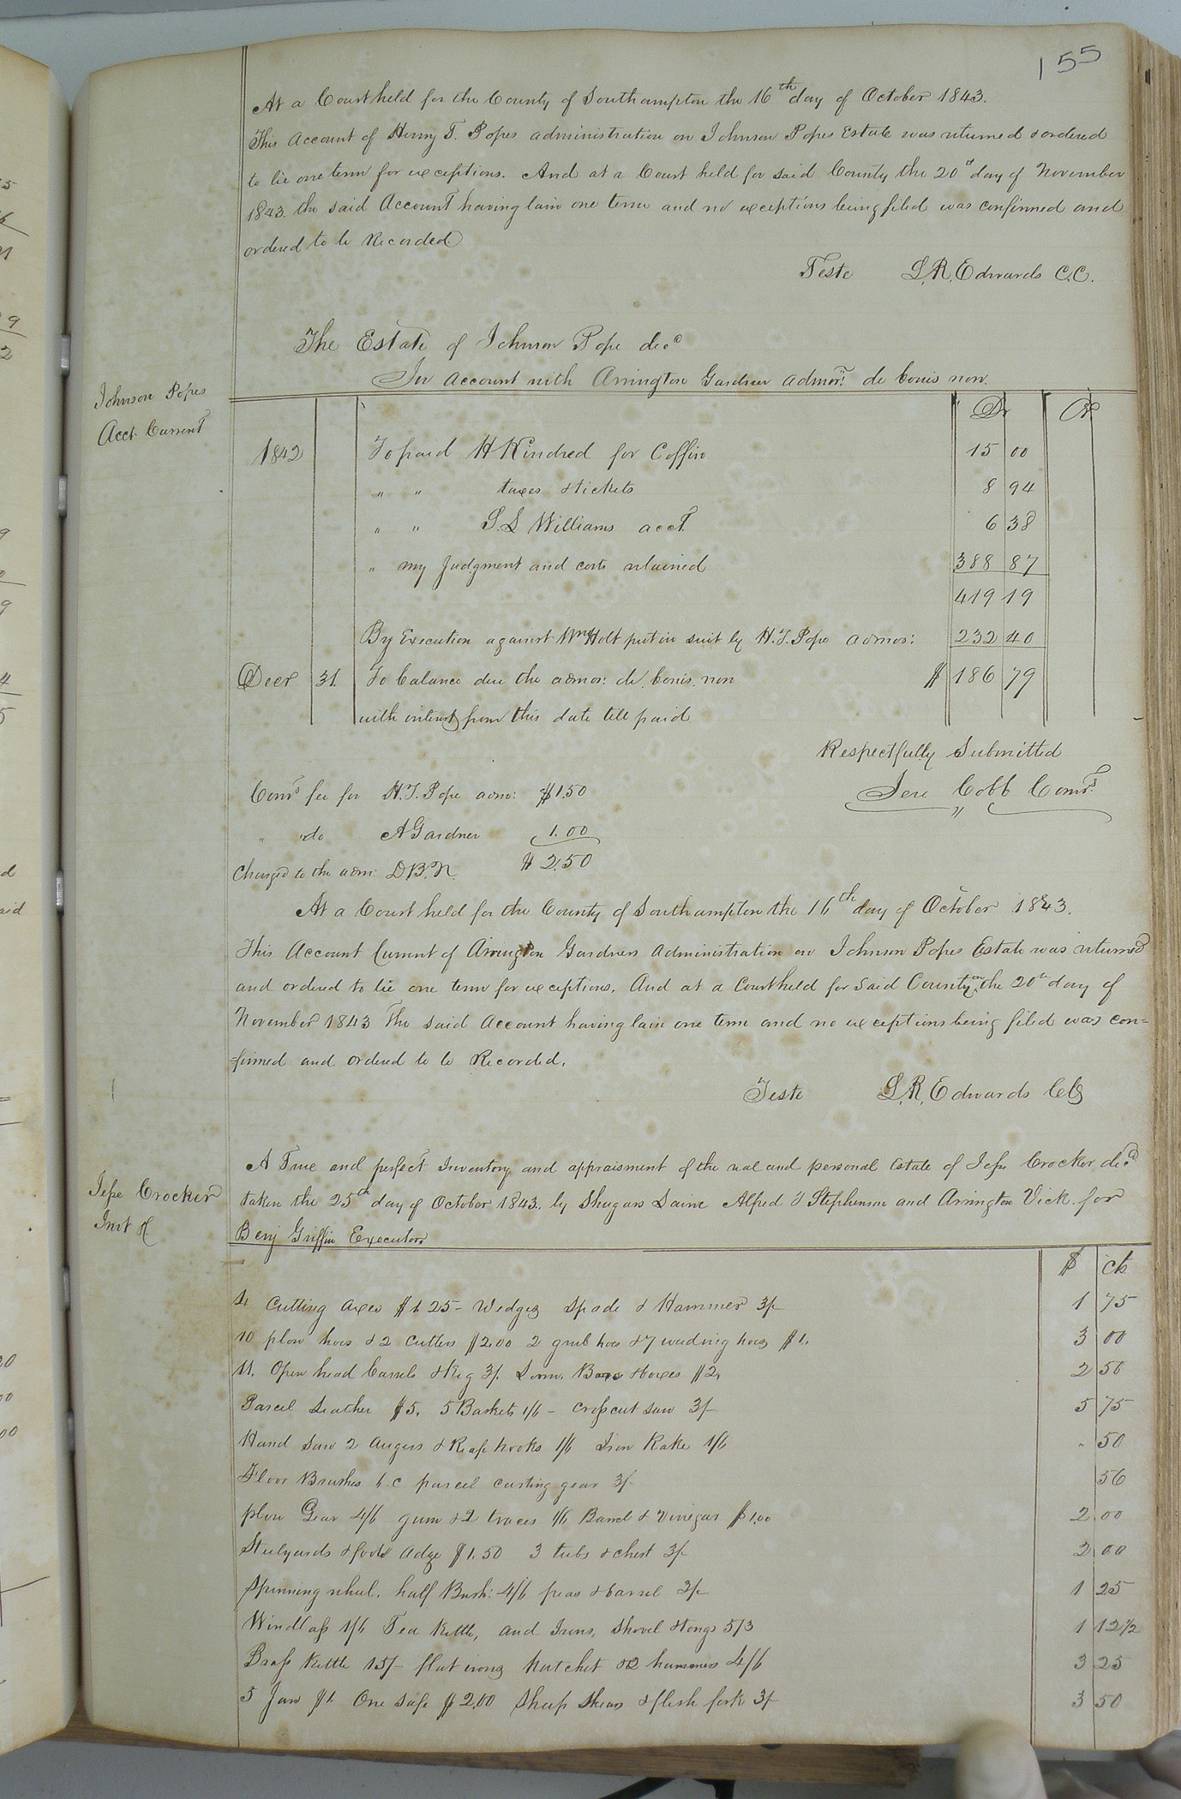 155
At a Court held for the County of Southampton the 16th day of October 1843.
This Account of Henry T. Popes administration on Johnson Popes Estate was returned & ordered
to lie one term for exceptions. And at a Court held for said County the 20th day of November
1843 the said Account having lain one term and no exceptions being filed was confirmed and
ordered to be Recorded
Teste L. R. Edwards C.C.
The Estate of Johnson Pope decd
In account with Arrington Gardner admor: de bonis non.
Johnson Popes
Acct. Current
Dr Cr
1842 To paid H Kindred for Coffin 15 00
" " taxes & tickets 8 94
" " S. L Williams acct. 6 38
" my Judgment and costs retained 388 87
419 19
By Execution against Wm Holt put in suit by H. T. Pope admor: 232 40
Decr 31 To balance due the admor: de bonis non $ 186 79
with interest from this date till paid
Respectfully Submitted
Jere Cobb Comr.
Comrs fee for H. T. Pope adm: $1.50
" do A Gardner 1.00
Charged to the adm: D.B.N. $2.50
At a Court held for the County of Southampton the 16th day of October 1843.
This Account Current of Arrington Gardners administration on Johnson Popes Estate was returned
and ordered to lie one term for exceptions. And at a Court held for said County on the 20th day of
November 1843 The said Account having lain one term and no exceptions being filed was con=
=firmed and ordered to be Recorded.
Teste L. R. Edwards Clk
A True and perfect Inventory and appraisment of the real and personal Estate of Jesse Crocker decd
Jesse Crocker
taken the 25th day of October 1843. by Shugars Laine Alfred J Stephenson and Arrington Vick for
Invt &
Benj Griffin Executor
$ cts
4 Cutting axes $1.25 - Wedges Spade & Hammer 3/- 1 75
10 plow hoes & 2 Cutters $2.00 2 grub hoes & 7 weeding hoes $1. 3 00
11. Open head barrels & Keg 3/. Boxes $2. 2 50
Parcel Leather $5. 5 Baskets 1/6 - Cross cut saw 3/- 5 75
Hand Saw 2 augers & Reap hooks 1/6 Iron Rake 1/6 " 50
Floor Brushes parcel carting gear 3/- 56
plow Gear 4/6 gum & 2 traces 1/6 Barrel & Vinegar $1.00 2 00
Steelyards & foot Adze $1.50 3 tubs & chest 3/- 2 00
Spinning wheel. half Bush: 4/6 peas & barrel 3/- 1 25
Windlass 1/6 Tea Kettle, and Irons, Shovel & tongs 5/3 1 12½
Brass Kettle 15/- flat irons hatchet & 2 hammers 4/6 3 25
5 Jars $1. One Safe $2.00 Sheep Shears & flesh fork 3/- 3 50